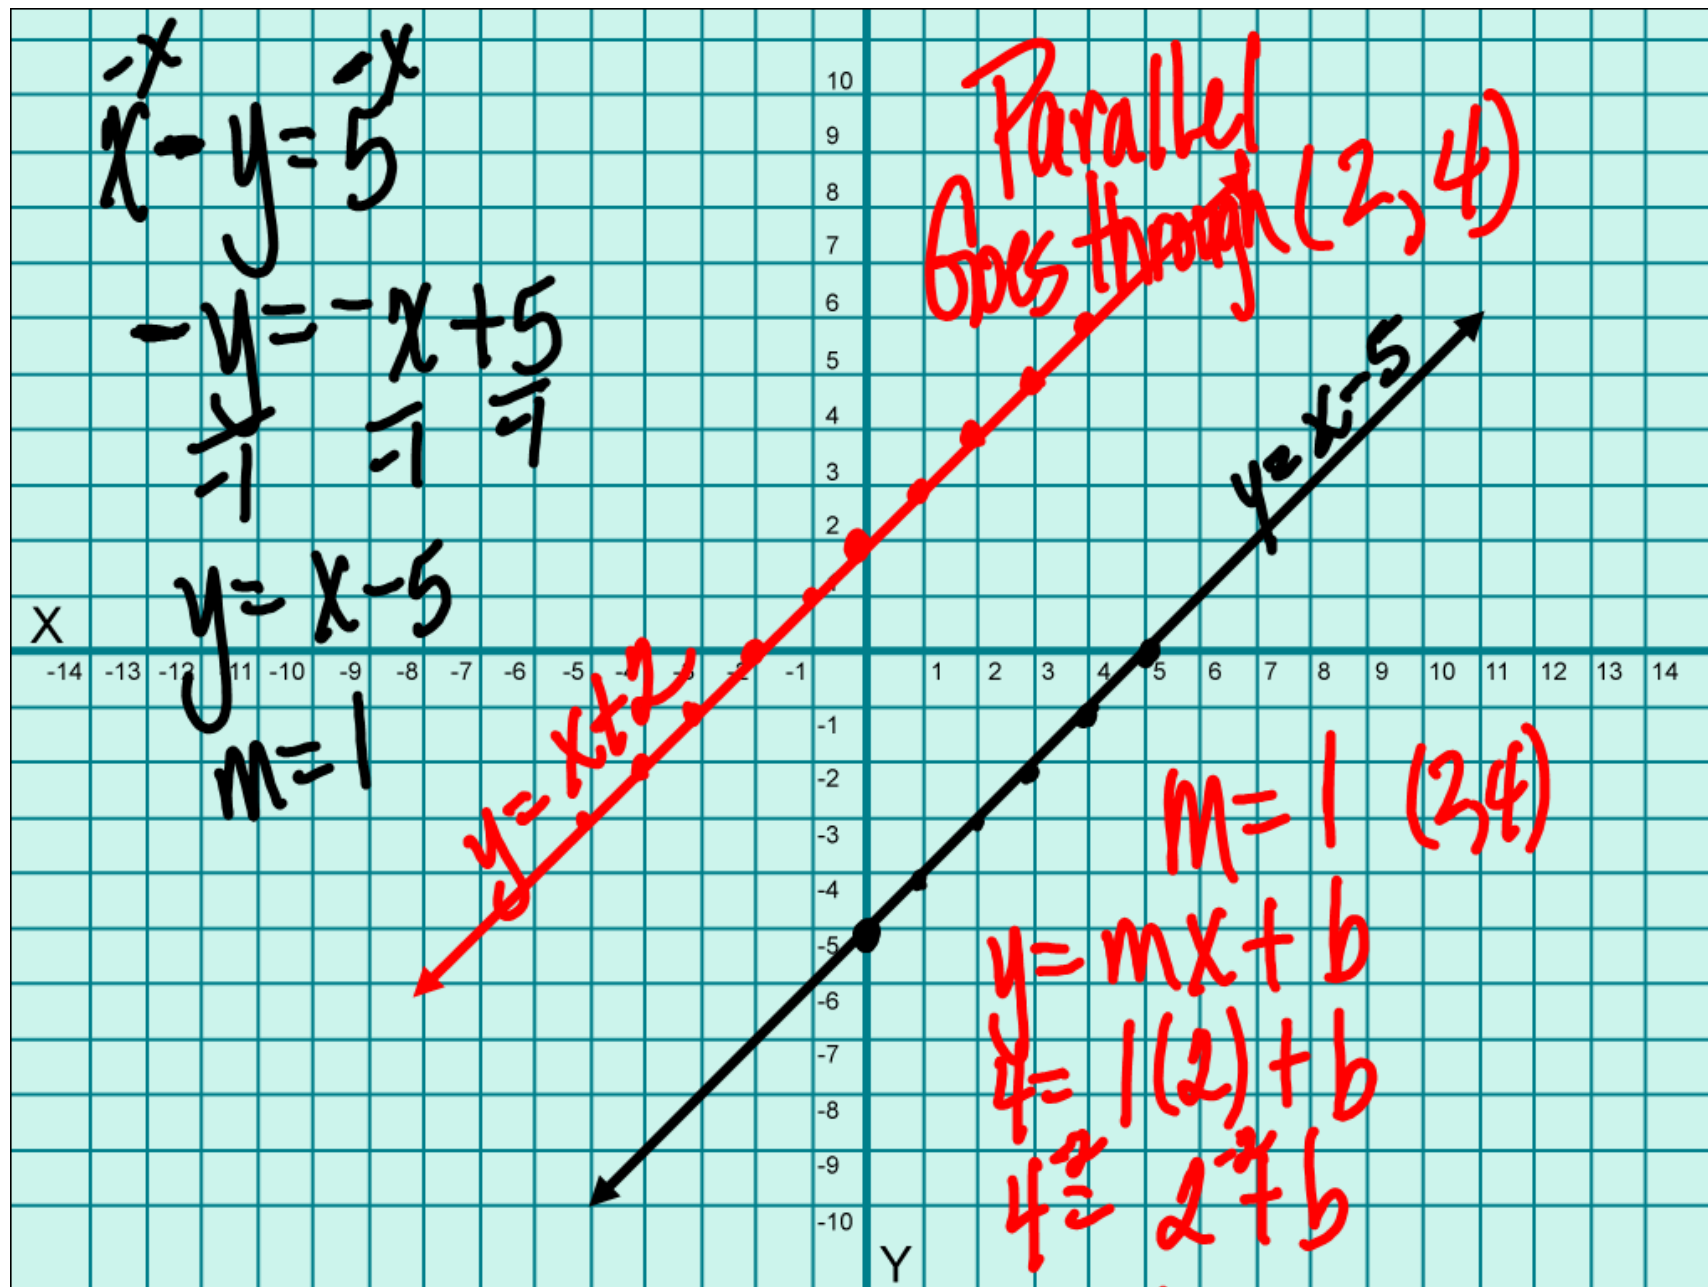 -x -x
x - y = 5
-y = -x + 5
-1 -1 -1
y = x - 5
m = 1
Parallel
Goes through (2, 4)
y = x - 5
y = x + 2
m = 1 (2,4)
y = mx + b
4 = 1(2) + b
-2 -2
4 = 2 + b
X
Y
10
9
8
7
6
5
4
3
2
-14 -13 -12 -11 -10 -9 -8 -7 -6 -5 -4 -3 -2 -1 1 2 3 4 5 6 7 8 9 10 11 12 13 14
-1
-2
-3
-4
-5
-6
-7
-8
-9
-10